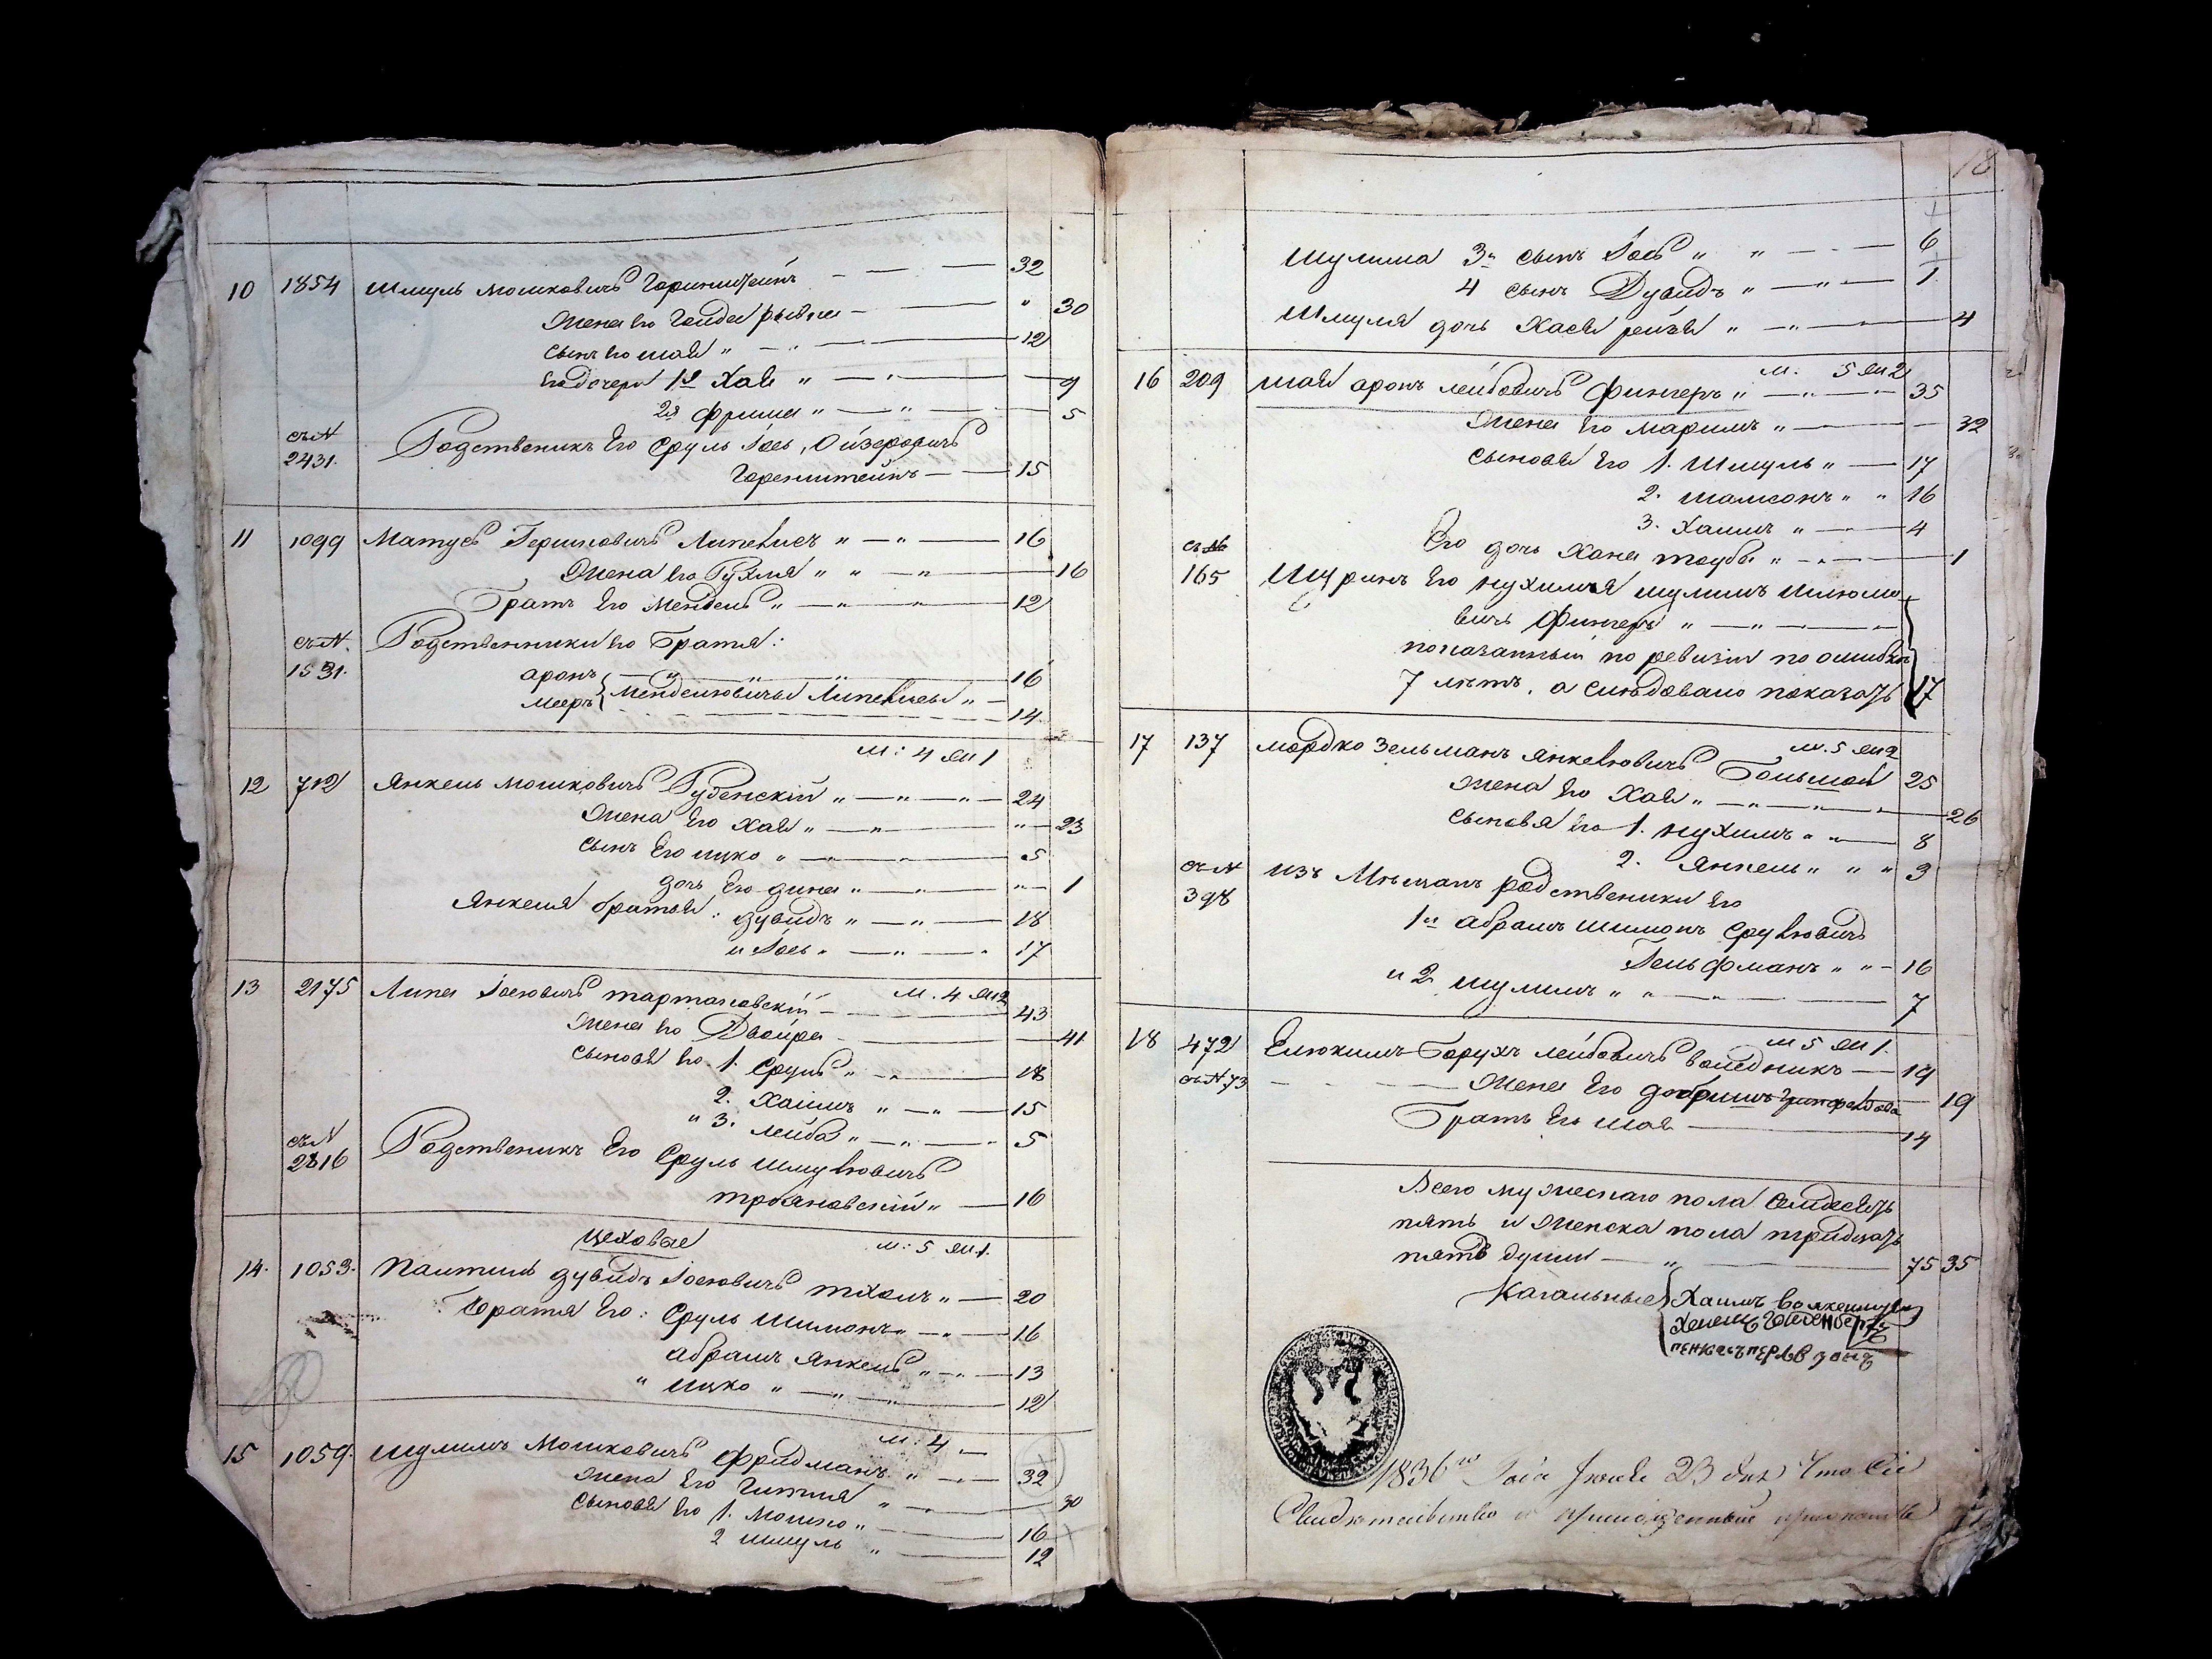 10 1854 Шмуль Мошковичъ Горинштейнъ 32
жена его Гейда рывка 30
сынъ его шая 12
его дочери 1я Хая 9
2я фрима 5
съ N 2431. Родственикъ Его Сруль Іось, Ойзеровичъ
Горенштейнъ 15
11 1099 Матусъ Гершковичъ Липелисъ 16
жена его Рухля 16
Братъ Его Мендель 12
съ N. 1531. Родственники его Братья:
аронъ 16
мееръ Менделиовичи 14
м: 4 ж 1
12 712 Янкель мошковичъ Губенскій 24
жена Его хая 23
сынъ Его ицко 5
дочь Его дина 1
Янкеля братья: дувидъ 18
и Іось 17
м. 4 ж 2
13 2175 Липа Іосіовичъ тартаковскій 43
жена его Двойра 41
сыновя его 1. Сруль 18
2. Хаимъ 15
" 3. лейба 5
съ N 2816 Родственикъ Его Сруль шмулиовичъ
трояновскій 16
цеховые м: 5 ж 1.
14. 1053. дувидъ Іосіовичъ 20
Братя Его: Сруль Шимонъ 16
абрамъ Янкель 13
" ицко 12
м: 4
15 1059. шулимъ Мошковичъ фридманъ 32
жена Его Гитля 30
сыновя Его 1. Мошко 16
2 шмуль 12
18
шулима 3й сынъ Іось 6
4 сынъ Дувидъ 1
Шмуля дочь Хася рейзя 4
м. 5 ж 2
16 209 шая аронъ лейбовичъ Фингеръ 35
жена Его маримъ 32
сыновя Его 1. Шмуль 17
2. шамсонъ 16
3. Хаимъ 4
Его дочь Хана тауба 1
съ N 165 Шуринъ Его шулимъ шлюмо
вичъ Фингеръ
показанный по ревизіи по ошибки
7 лѣтъ, а слѣдовало показать 17
м. 5 ж 2
17 137 мордко Зельманъ янкелювичъ 25
жена его Хая 26
сыновя его 1. нухимъ 8
2. Янкель 3
съ N 398 изъ Мѣщанъ родственики Его
1й абрамъ шимонъ срулювичъ
Гельфманъ 16
и 2 шулимъ 7
м 5 ж 1.
18 472 Елюкимъ Борухъ лейбовичъ 19
съ N 73 жена Его добришъ 19
Братъ Его шая 14
Всего мужескаго пола семдесятъ
пять и женска пола тридцать
пять душъ 75 35
Кагальные Хаимъ
1836го Года Іюня 23 дня Что Сіе
Свидѣтельство